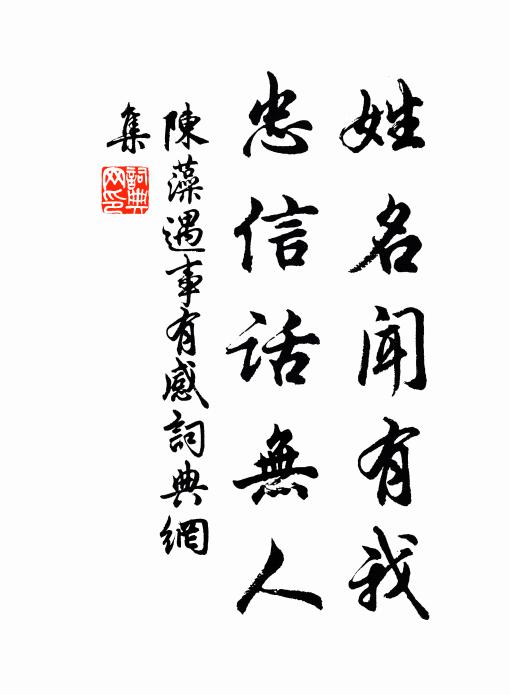 姓名闻有我
忠信話無人
陳藻遇事有感詞典網
集
詞典网印